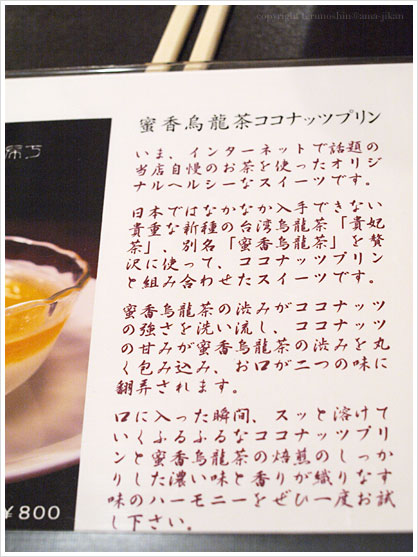 copyright terunoshin@ama-jikan
蜜香烏龍茶ココナッツプリン
いま、インターネットで話題の
当店自慢のお茶を使ったオリジ
ナルヘルシーなスイーツです。
日本ではなかなか入手できない
貴重な新種の台湾烏龍茶「貴妃
茶」、別名「蜜香烏龍茶」を贅
沢に使って、ココナッツプリン
と組み合わせたスイーツです。
蜜香烏龍茶の渋みがココナッツ
の強さを洗い流し、ココナッツ
の甘みが蜜香烏龍茶の渋みを丸
く包み込み、お口が二つの味に
翻弄されます。
口に入った瞬間、スッと溶けて
いくふるふるなココナッツプリ
ンと蜜香烏龍茶の焙煎のしっか
りした濃い味と香りが織りなす
味のハーモニーをぜひ一度お試
し下さい。
¥800